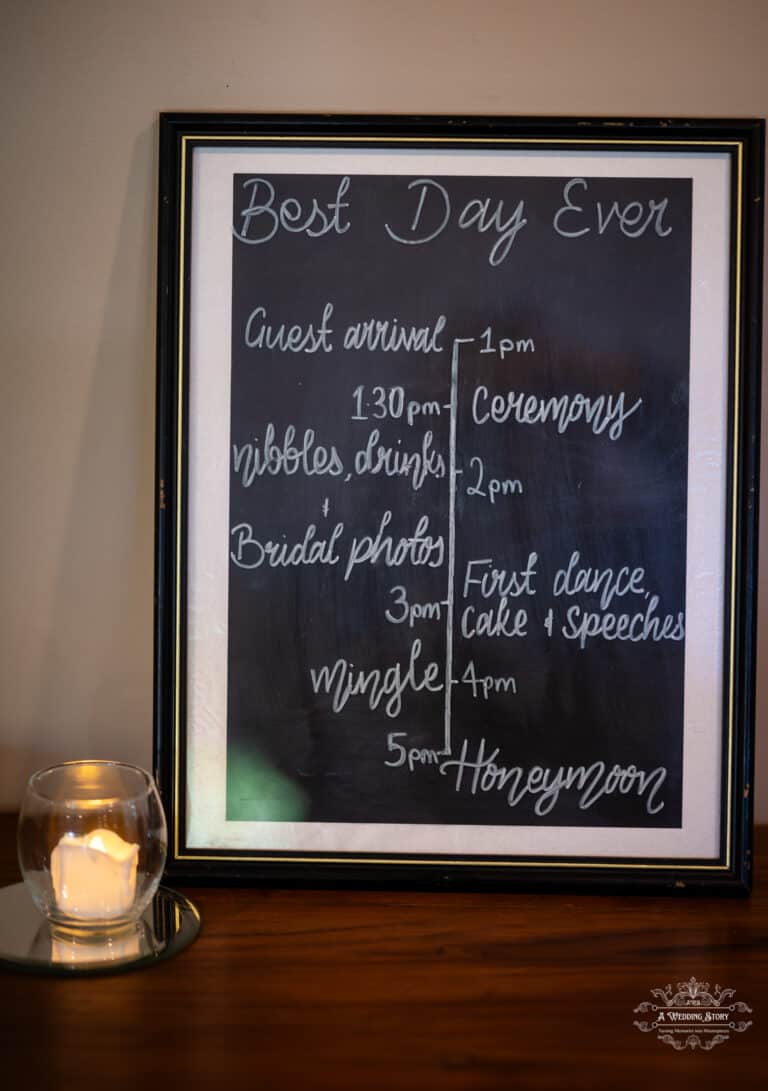 Best Day Ever
Guest arrival 1pm
1:30pm Ceremony
nibbles, drinks 2pm
&
Bridal photos
3pm First dance,
Cake & Speeches
mingle 4pm
5pm Honeymoon
A WEDDING STORY
Turning Memories into Masterpieces